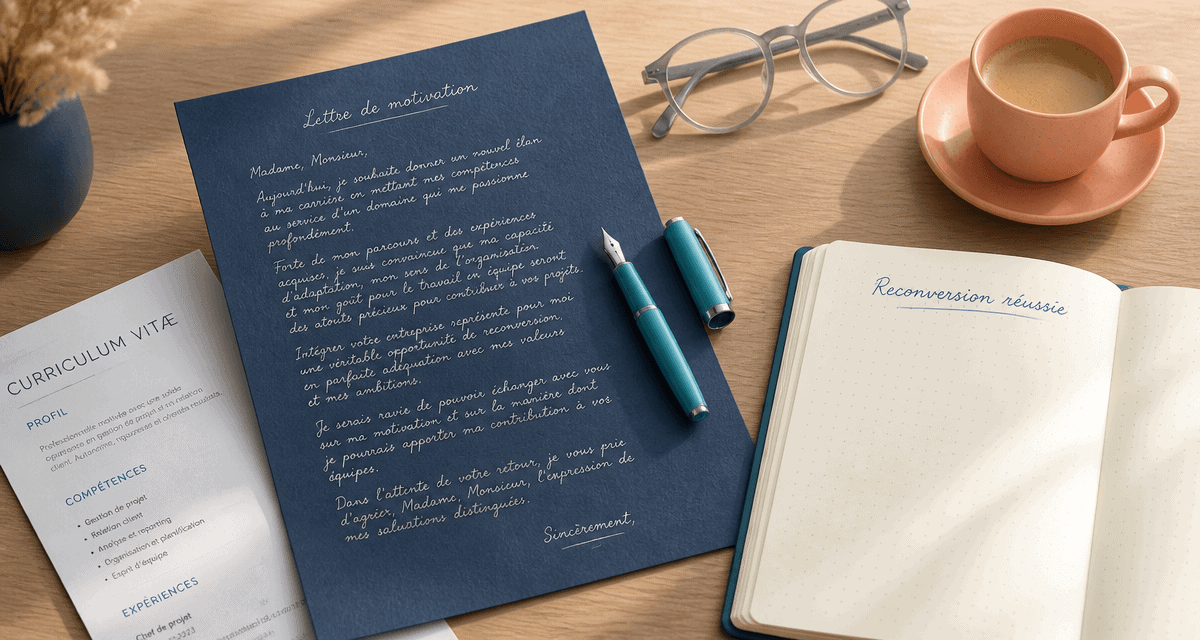 Lettre de motivation
Madame, Monsieur,
Aujourd'hui, je souhaite donner un nouvel élan
à ma carrière en mettant mes compétences
au service d'un domaine qui me passionne
profondément.
Forte de mon parcours et des expériences
acquises, je suis convaincue que ma capacité
d'adaptation, mon sens de l'organisation,
et mon goût pour le travail en équipe seront
des atouts précieux pour contribuer à vos projets.
Intégrer votre entreprise représente pour moi
une véritable opportunité de reconversion,
en parfaite adéquation avec mes valeurs
et mes ambitions.
Je serais ravie de pouvoir échanger avec vous
sur ma motivation et sur la manière dont
je pourrais apporter ma contribution à vos
équipes.
Dans l'attente de votre retour, je vous prie
d'agréer, Madame, Monsieur, l'expression de
mes salutations distinguées.
Sincèrement,
CURRICULUM VITÆ
PROFIL
Professionnelle motivée avec une solide
en gestion de projet et en relation
client. Autonome, rigoureuse et orientée résultats.
COMPÉTENCES
• Gestion de projet
• Relation client
• Analyse et reporting
• Organisation et planification
• Esprit d'équipe
EXPÉRIENCES
Chef de projet
Reconversion réussie